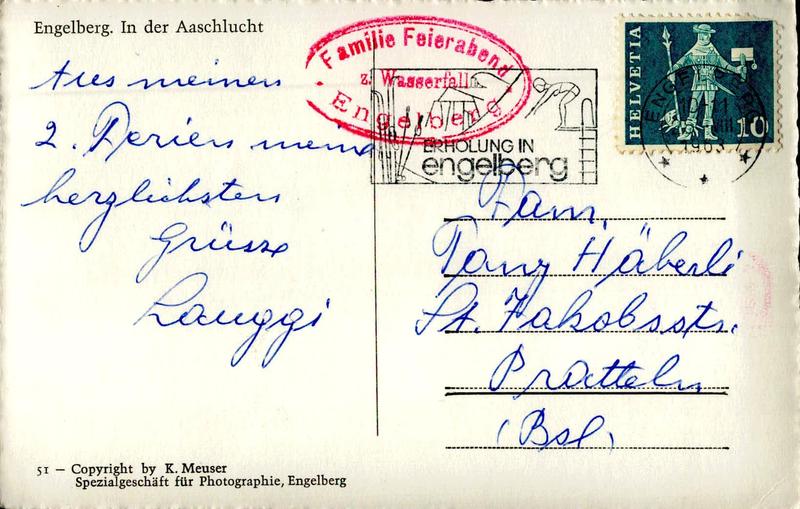 Engelberg. In der Aaschlucht
Familie Feierabend
z. Wasserfall
Engelberg
ERHOLUNG IN
engelberg
HELVETIA
10
ENGELBERG
VIII
1963
Aus meinen
2. Ferien meine
herzlichsten
Grüsse
Fam.
Tony Häberli
St. Jakobsstr.
Pratteln
(Bsl)
51 – Copyright by K. Meuser
Spezialgeschäft für Photographie, Engelberg